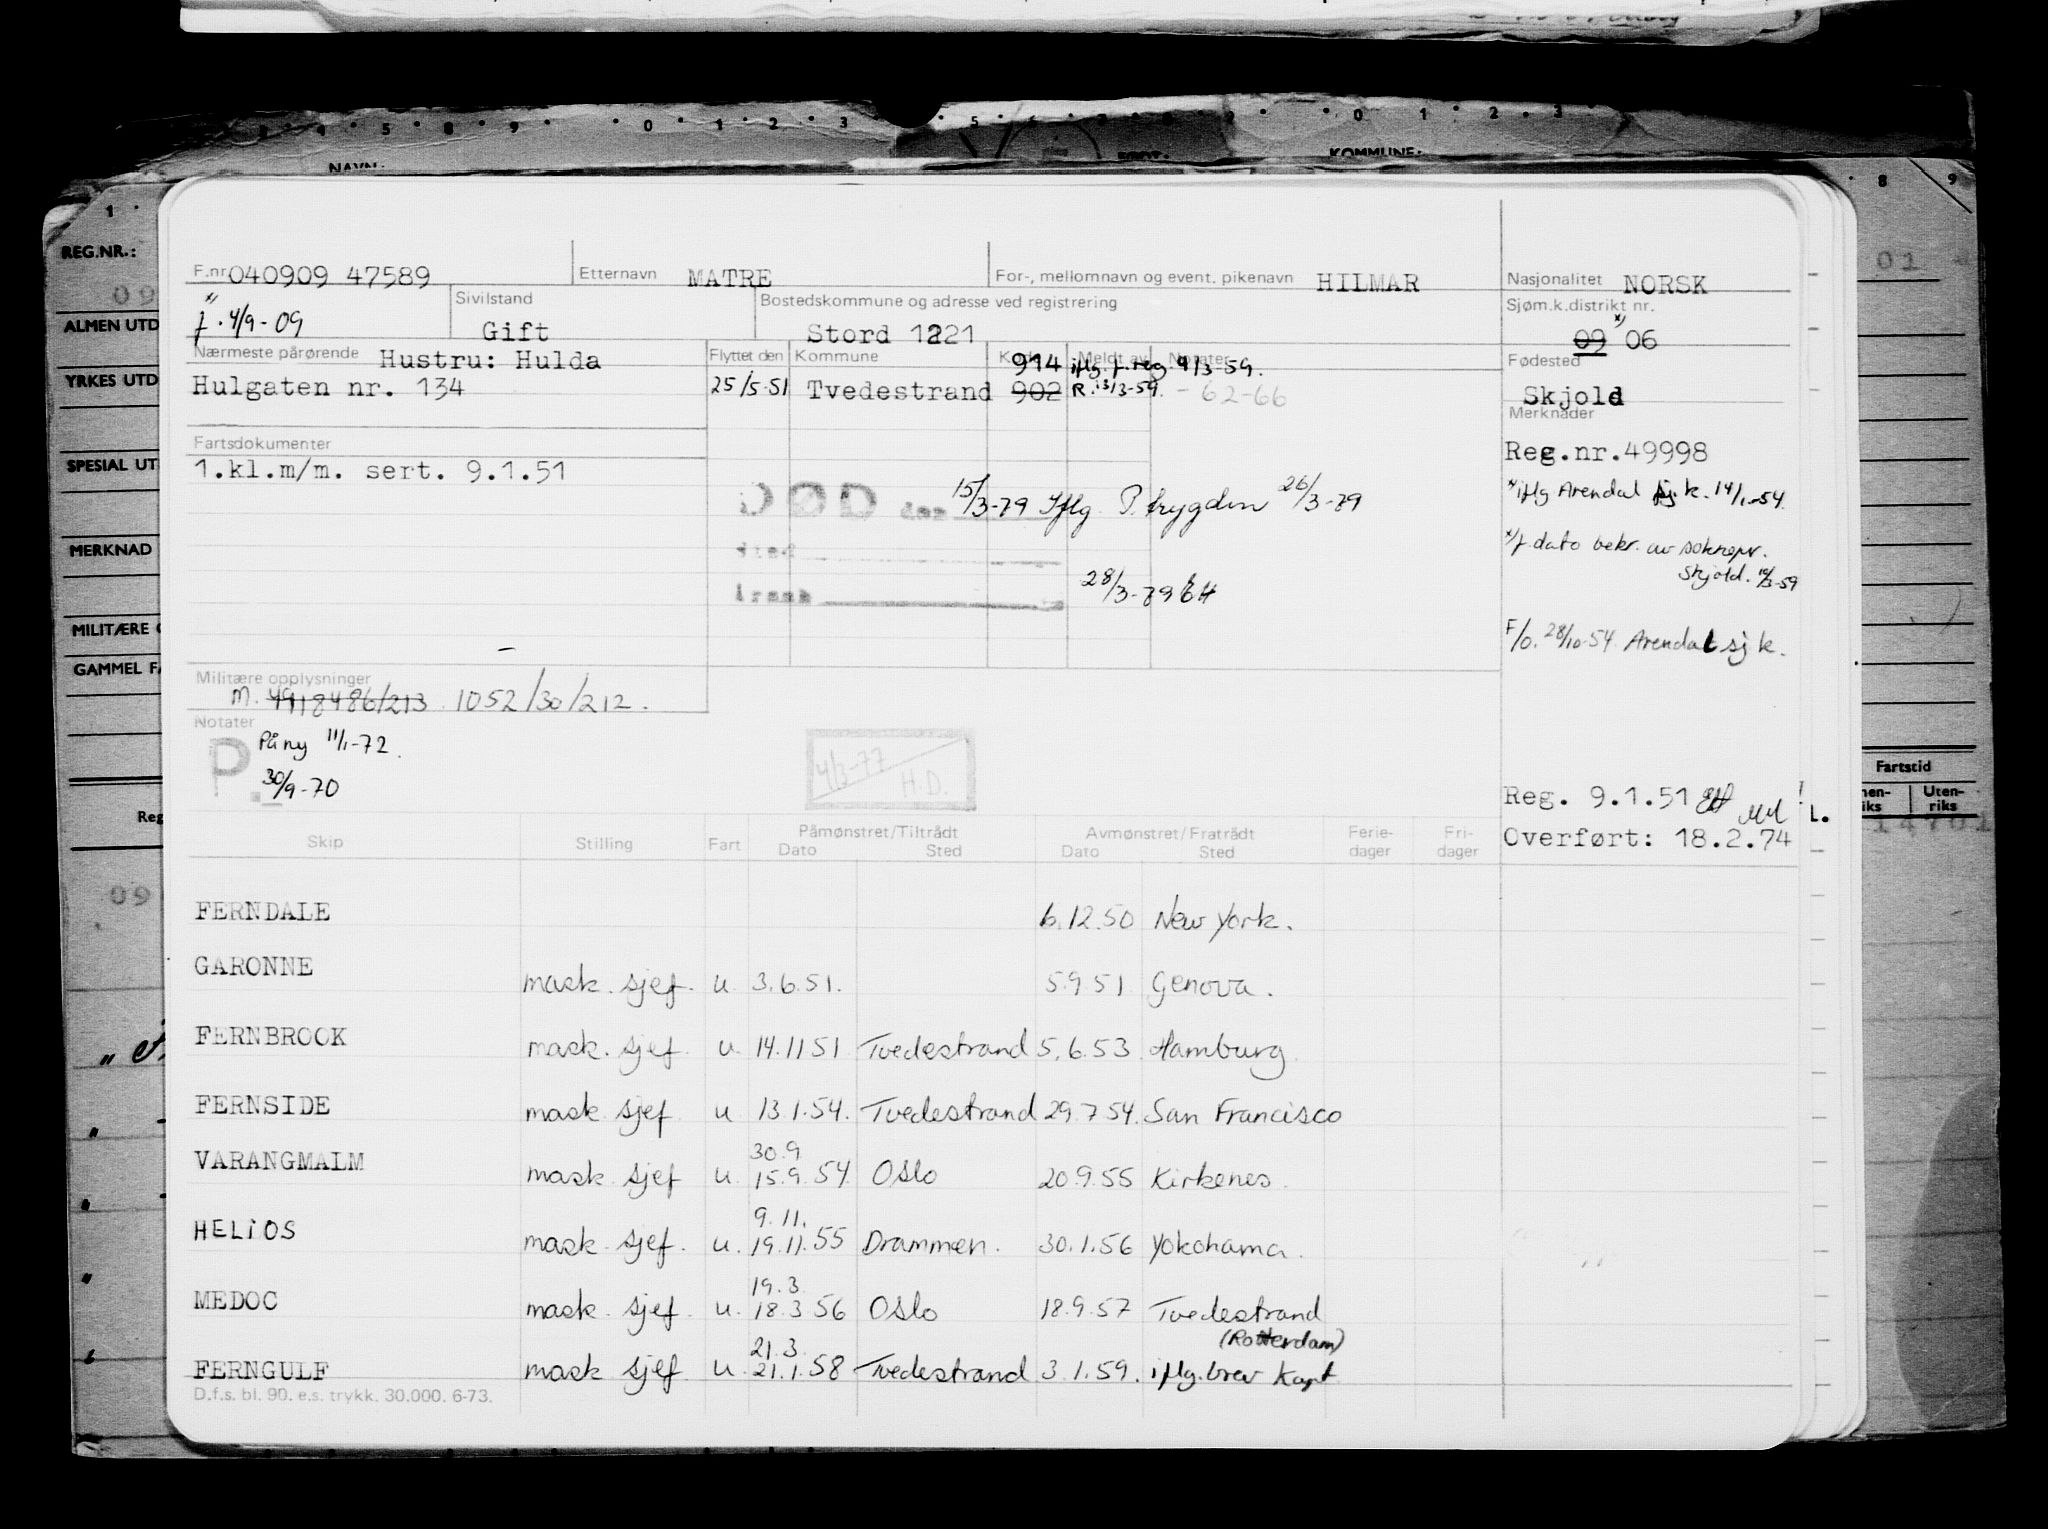 NAVN:
KOMMUNE:
REG.NR.:
ALMEN UTD
YRKES UTD
SPESIAL UT
MERKNAD
MILITÆRE
GAMMEL
F.nr. 040909 47589
Etternavn MATRE
For-, mellomnavn og event. pikenavn HILMAR
Nasjonalitet NORSK
x) f. 4/9-09
Sivilstand
Gift
Bostedskommune og adresse ved registrering
Stord 1221
Sjøm.k.distrikt nr.
09 x) 06
Nærmeste pårørende Hustru: Hulda
Hulgaten nr. 134
Flyttet den Kommune Kode Meldt av Notater
914 iflg. f.reg. 9/3-59.
25/5-51 Tvedestrand 902 R. 13/3-59. - 62-66
Fødested
Skjold
Merknader
Fartsdokumenter
1.kl.m/m. sert. 9.1.51
Reg.nr.49998
x) iflg Arendal sj.k. 14/1-54.
DØD den 15/3-79 Iflg. P. trygden 26/3-79
sted
årsak
28/3-79 EH
x) f.dato bekr. av sokнepr.
Skjold. 10/3-59
F/O. 28/10-54 Arendal sj k.
Militære opplysninger
m. 4918486/213 1052/30/212.
Notater
P. På ny 11/1-72.
30/9-70
4/3-77
H.D.
Reg. 9.1.51
L.
Overført: 18.2.74
Fartstid
Uten-
riks
14701
Skip Stilling Fart Påmønstret/Tiltrådt Dato Sted Avmønstret/Fratrådt Dato Sted Ferie-dager Fri-dager
FERNDALE 6.12.50 New York.
GARONNE mask. sjef. u. 3.6.51. 5.9.51 Genova.
FERNBROOK mask. sjef. u. 14.11 51 Tvedestrand 5.6.53 Hamburg.
FERNSIDE mask sjef. u 13.1.54. Tvedestrand 29.7 54. San Francisco
30.9
VARANGMALM mask. sjef u. 15.9.54 Oslo 20.9.55 Kirkenes.
9.11.
HELIOS mask. sjef. u. 19.11.55 Drammen. 30.1.56 Yokohama.
19.3.
MEDOC mask. sjef. u. 18.3.56 Oslo 18.9.57 Tvedestrand
(Rotterdam)
21.3.
FERNGULF mask sjef. u. 21.1.58 Tvedestrand 3.1.59. iflg. brev Kapt
D.f.s. bl. 90. e.s. trykk. 30.000. 6-73.